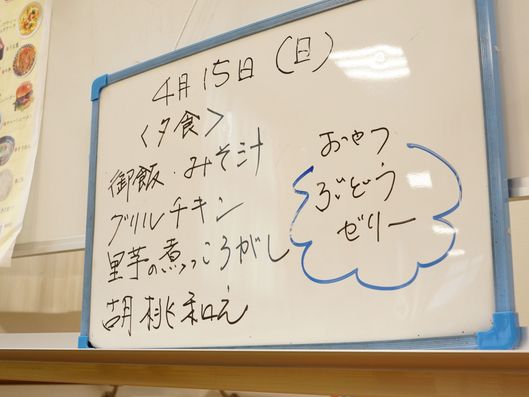 4月15日(日)
<夕食>
御飯・みそ汁
グリルチキン
里芋の煮っころがし
胡桃和え
おやつ
ぶどう
ゼリー